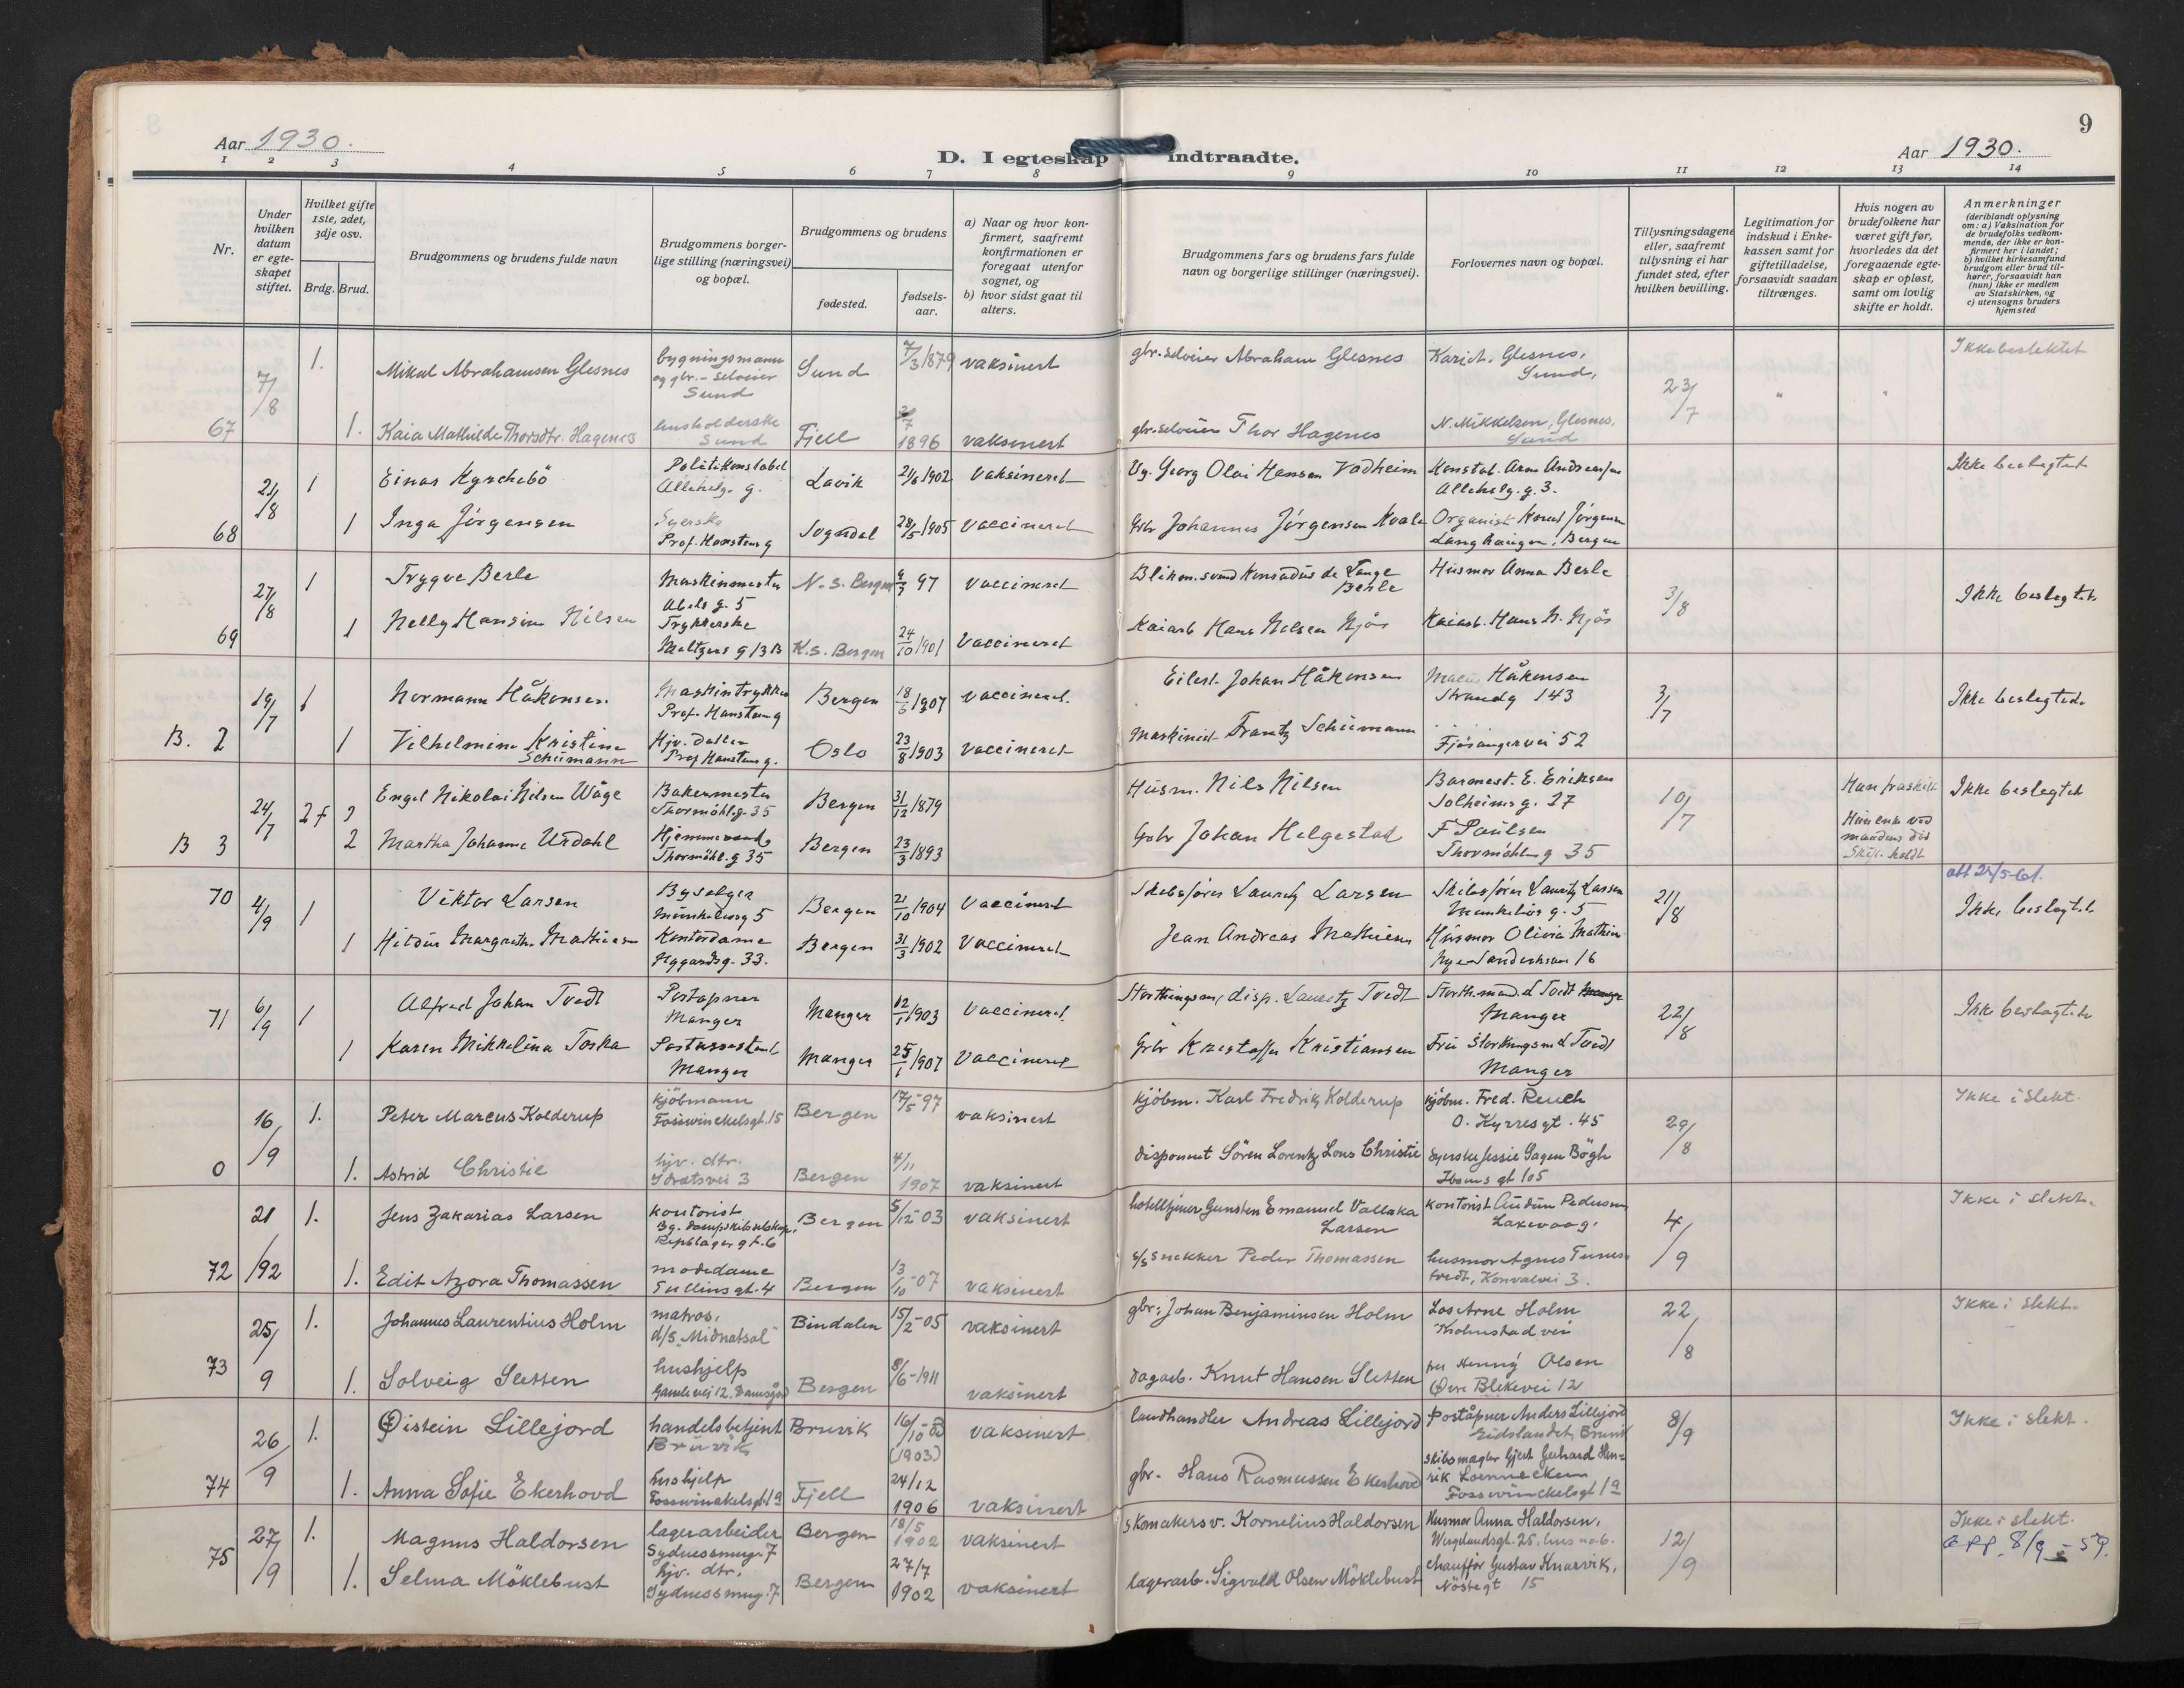 Aar 1930.
D. I egteskap indtraadte.
Aar 1930.
9
1 2 3 4 5 6 7 8 9 10 11 12 13 14
Nr.
Under hvilken datum er egteskapet stiftet.
Hvilket gifte 1ste, 2det, 3dje osv.
Brdg. Brud.
Brudgommens og brudens fulde navn
Brudgommens borgerlige stilling (næringsvei) og bopæl.
Brudgommens og brudens
fødested.
fødselsaar.
a) Naar og hvor konfirmert, saafremt konfirmationen er foregaat utenfor sognet, og
b) hvor sidst gaat til alters.
Brudgommens fars og brudens fars fulde navn og borgerlige stillinger (næringsvei).
Forlovernes navn og bopæl.
Tillysningsdagene eller, saafremt tillysning ei har fundet sted, efter hvilken bevilling.
Legitimation for indskud i Enkekassen samt for giftetilladelse, forsaavidt saadan tiltrænges.
Hvis nogen av brudefolkene har været gift før, hvorledes da det foregaaende egteskap er opløst, samt om lovlig skifte er holdt.
Anmerkninger (deriblandt oplysning om: a) Vaksination for de brudefolks vedkommende, der ikke er konfirmert her i landet; b) hvilket kirkesamfund brudgom eller brud tilhører, forsaavidt han (hun) ikke er medlem av Statskirken, og c) utensogns bruders hjemsted
67 7/8 1. Mikal Abrahamsen Glesnes bygningsmann og gbr.-selveier Sund Sund 7/3 1879 vaksinert gbr. selveier Abraham Glesnes Glesnes, Sund, 23/7 Ikke beslektet
1. Kaia Mathilde Thorsdtr. Hagenes husholderske Sund Fjell 1896 vaksinert gbr. selveier Thor Hagenes N. Mikkelsen, Glesnes, Sund
68 21/8 1 Einar Kyrchebö Politikonstabel Allehelg. g. Lavik 21/6 1902 Vaksineret Georg Olai Hansen Vadheim Konstab. Arne Andreassen Allehelg. g. 3. Ikke beslegtet
1 Inga Jörgensen Syerske Prof. Hansteensg Sogndal 28/5 1905 Vaccineret Gbr Johannes Jörgensen Kvale Organist Knut Jörgensen Langhaugen, Bergen
69 27/8 1 Trygve Berle Maskinmester Abels g. 5 N. S. Bergen 4/3 97 Vaccineret Blikensl. svend Konradus de Lange Berle Husmor Anna Berle 3/8 Ikke beslegtet
1 Nelly Hansine Nilsen Trykkerske Meltzers g 13 B K. S. Bergen 24/10 1901 Vaccineret Kaiarb Hans Nilsen Njös Kaiarb. Hans N. Njös
B. 2 19/7 1 Normann Håkonsen Maskintrykker Prof. Hansteensg Bergen 18/6 1907 Vaccineret. Eilert Johan Håkonsen Håkonsen Strandg 143 3/7 Ikke beslegtede
1 Vilhelmine Kristine Schumann Hjv. datter Prof Hansteensg. Oslo 23/8 1903 Vaccineret Maskinist Frantz Schümann Fjösangervei 52
B 3 24/7 2 f 2 Engel Nikolai Nilsen Wåge Bakermester Thormöhlsg. 35 Bergen 31/12 1879 Husm. Nils Nilsen Barmest. E. Eriksen Solheimsg. 27 10/7 Han fraskilt Ikke beslegtet
2 Martha Johanne Urdahl Hjemmeværende Thormöhl. g 35 Bergen 23/3 1893 Gbr Johan Helgestad F Paulsen Thormöhlensg 35 Hun enke ved mandens död Skifte holdt
70 4/9 1 Viktor Larsen Byselger Munkelivsg 5 Bergen 21/10 1904 Vaccineret Skibsförer Lauritz Larsen Skibsförer Lauritz Larsen Munkelivs g. 5 21/8 att 25/5-61. Ikke beslegtet
1 Hildur Margrethe Mathiesen Kontordame Nygaardsg. 33. Bergen 31/3 1902 Vaccineret Jean Andreas Mathiesen Husmor Olivia Mathiesen Nye Sandviksvei 16
71 6/9 1 Alfred Johan Tvedt Postapner Manger Manger 12/1 1903 Vaccineret. Storthingsm, disp. Lauritz Tvedt Storth. mand. L Tvedt Manger 22/8 Ikke beslegtede
1 Karen Mikkeline Toska Postassistent Manger Manger 25/1 1907 Vaccineret Gbr Kristoffer Kristiansen Fru Storthingsm L Tvedt Manger
0 16/9 1. Peter Marcus Kolderup kjöbmann Fosswinckelsgt. 15 Bergen 17/5-97 vaksinert kjöbm. Karl Fredrik Kolderup kjöbm. Fred. Reuch O. Kyrresgt. 45 29/8 Ikke i slekt.
1. Astrid Christie hjv. dtr. Idrætsvei 3 Bergen 4/11 1907 vaksinert disponent Sören Lorentz Lous Christie syerske Jessie Gagen Bögh Ibsens gt 105
72 21/92 1. Jens Zakarias Larsen kontorist Bg. dampskibsselskap, Repslagergt. 6 Bergen 5/12-03 vaksinert hotelltjener Gunsten Emanuel Vallaka Larsen kontorist Audun Pedersen Laxevaag. 4/9 Ikke i slekt.
1. Edit Azora Thomassen motedame Tullinsgt. 4 Bergen 13/10-07 vaksinert s/s snekker Peder Thomassen husmor Agnes Tunestvedt, Konvalvei 3.
73 25/9 1. Johannes Laurentius Holm matros, d/s "Midnatsol" Bindalen 15/2-05 vaksinert gbr.: Johan Benjaminsen Holm Los Arne Holm Kolmstadvei 22/8 Ikke i slekt.
1. Solveig Sletten hushjelp Gamlevei 12, Damsgård Bergen 8/6-1911 vaksinert dagarb. Knut Hansen Sletten fru Henny Olsen Övre Blekevei 12
74 26/9 1. Øistein Lillejord handelsbetjent Bruvik Bruvik 16/10-03 (1903) vaksinert landhandler Andreas Lillejord Poståpner Anders Lillejord Eidslandet, Bruvik 8/9 Ikke i slekt.
1. Anna Sofie Ekerhovd hushjelp Fosswinckelsgt 1a Fjell 24/12 1906 vaksinert gbr. Hans Rasmussen Ekerhovd skibsmegler Gjert Gerhard Henrik Loennecken Fosswinckelsgt 1a
75 27/9 1. Magnus Haldorsen lagerarbeider Sydnessmug. 7 Bergen 18/5 1902 vaksinert skomakersv. Kornelius Haldorsen Husmor Anna Haldorsen, Werglandsgt. 25, hus no 6. 12/9 Ikke i slekt. opp. 8/9 - 59.
1. Selma Möklebust hjv. dtr. Sydnessmug. 7 Bergen 27/7 1902 vaksinert lagerarb. Sigvald Olsen Möklebust chauffør Gustav Knarvik, Nöstegt 15